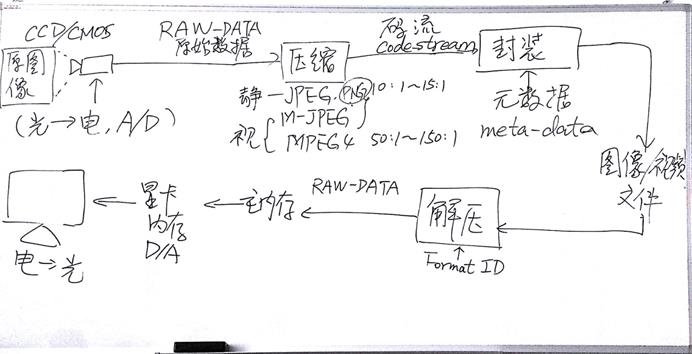 CCD/CMOS
原图
像
(光→电, A/D)
RAW-DATA
原始数据
压缩
静—JPEG, PNG 10:1~15:1
视{ M-JPEG }
MPEG4 50:1~150:1
码流
codestream
封装
元数据
meta-data
图像/视频
文件
解压
Format ID
RAW-DATA
主内存
显卡
内存
D/A
电→光